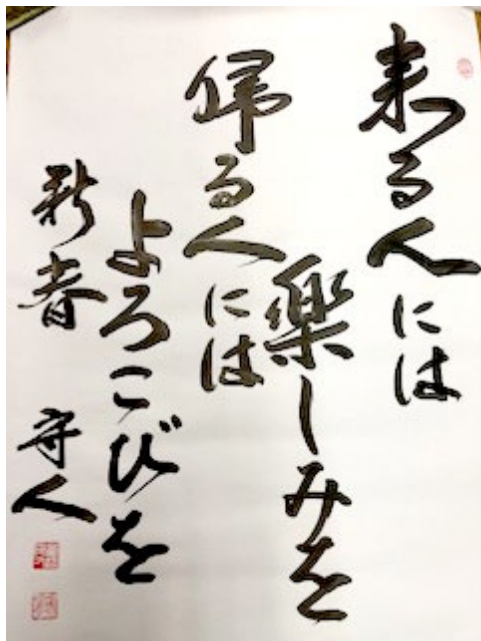 来る人には
楽しみを
帰る人には
よろこびを
新春 守人